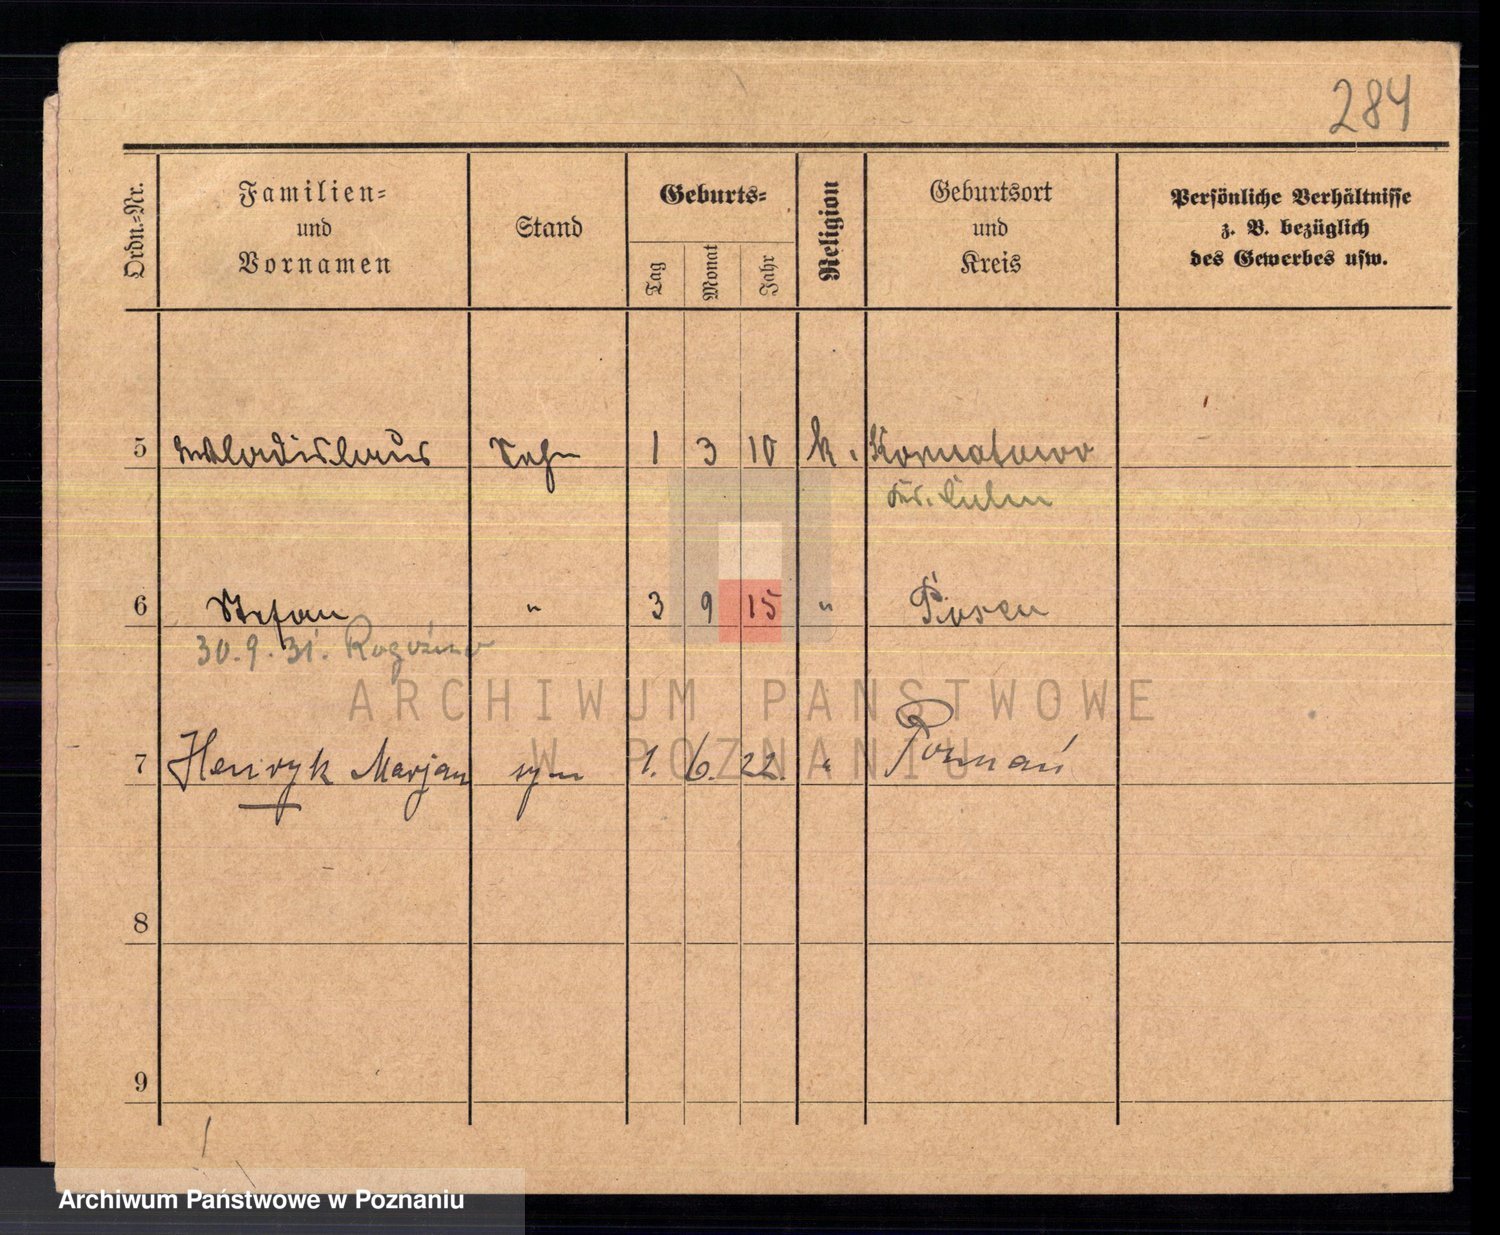 284
Ordn.-Nr.
Familien-
und
Vornamen
Stand
Geburts-
Tag
Monat
Jahr
Religion
Geburtsort
und
Kreis
Persönliche Verhältnisse
z. B. bezüglich
des Gewerbes usw.
5 Wladislaus Sohn 1 3 10 k. Kornatowo
Krs. Culm
6 Stefan " 3 9 15 " Posen
30.9.31. Rogoźno
7 Henryk Marjan syn 1. 6. 22. " Poznań
8
9
ARCHIWUM PAŃSTWOWE
W POZNANIU
Archiwum Państwowe w Poznaniu